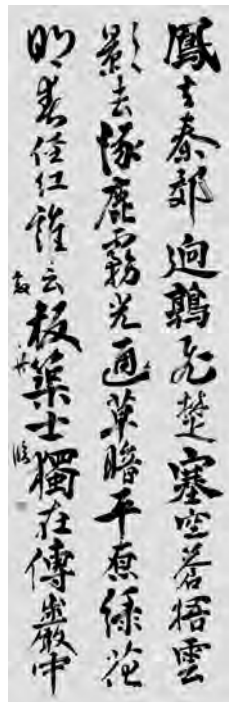 鳳去秦郊迥鶉飛楚塞空蒼梧雲
影去涿鹿霧光通草暗平原綠花
明春徑紅誰云板築士獨在傅巖中